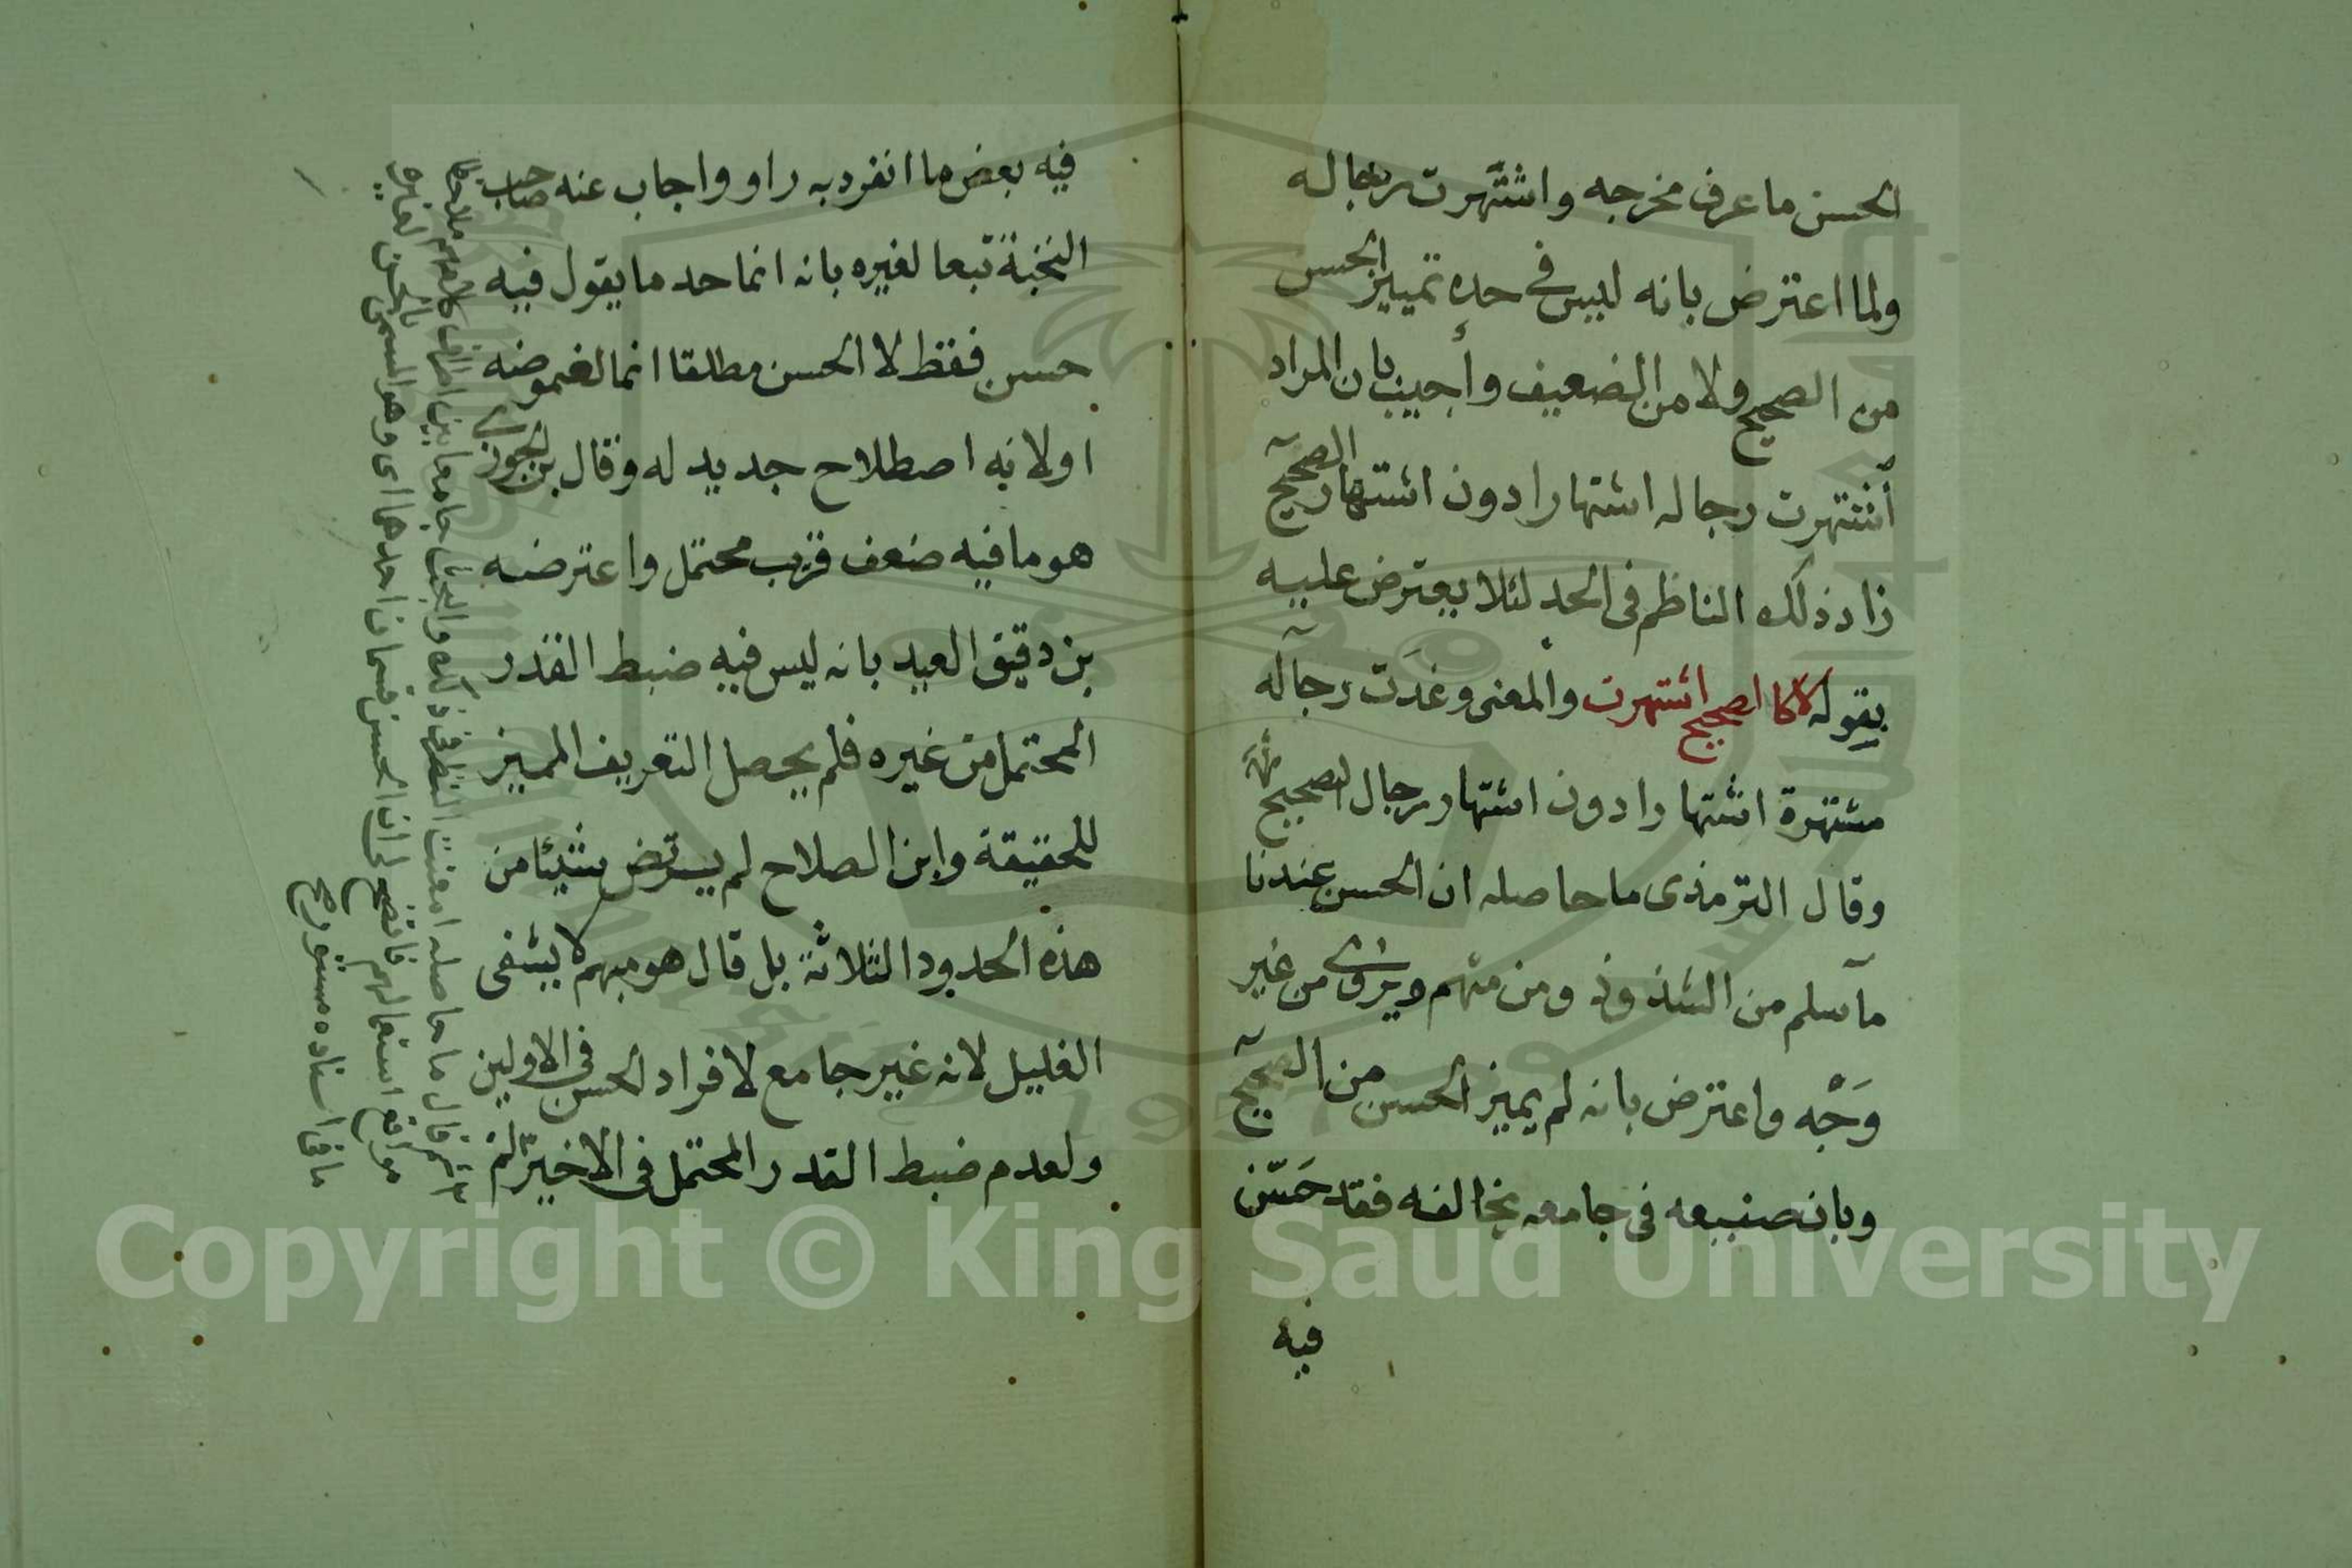 الحسن ما عرف مخرجه واشتهرت رجاله
ولما اعترض بانه ليس في حده تمييز الحسن
من الصحيح ولا من الضعيف وأجيب بان المراد
أشتهرت رجاله اشتهارا دون اشتهار الصحيح
زاد ذلك الناظم فى الحد لئلا يعترض عليه
بقوله لا كالصحيح اشتهرت والمعنى وغدَت رجاله
مشتهرة اشتهارا دون اشتهار رجال الصحيح
وقال الترمذى ما حاصله ان الحسن عندنا
ما سلم من الشذوذ ومن متهم ويروى من غير
وَجْه واعترض بانه لم يميز الحسن من الصحيح
وبان صنيعه فى جامعه يخالفه فقد حَسّن
فيه
فيه بعض ما انفرد به راو واجاب عنه صاحب
النخبة تبعا لغيره بانه انما حد ما يقول فيه
حسن فقط لا الحسن مطلقا انما لغموضه
او لانه اصطلاح جديد له وقال بن الجوزي
هو ما فيه ضعف قريب محتمل واعترضه
بن دقيق العيد بانه ليس فيه ضبط القدر
المحتمل من غيره فلم يحصل التعريف المميز
للحقيقة وابن الصلاح لم يرتض شيئا من
هذه الحدود الثلاثة بل قال هو مبهم لا يشفى
الغليل لانه غير جامع لافراد الحسن فى الاولين
ولعدم ضبط القدر المحتمل فى الاخير ثم
ثم قال ما حاصله امعنت النظر فى ذلك والبحث جامعا بين اطراف كلامهم ملاحظا
مواقع استعمالهم فاتضح لى ان الحسن قسمان احدهما اى وهو المسمى بالحسن لغيره
ما فى اسناده مستور
Copyright © King Saud University